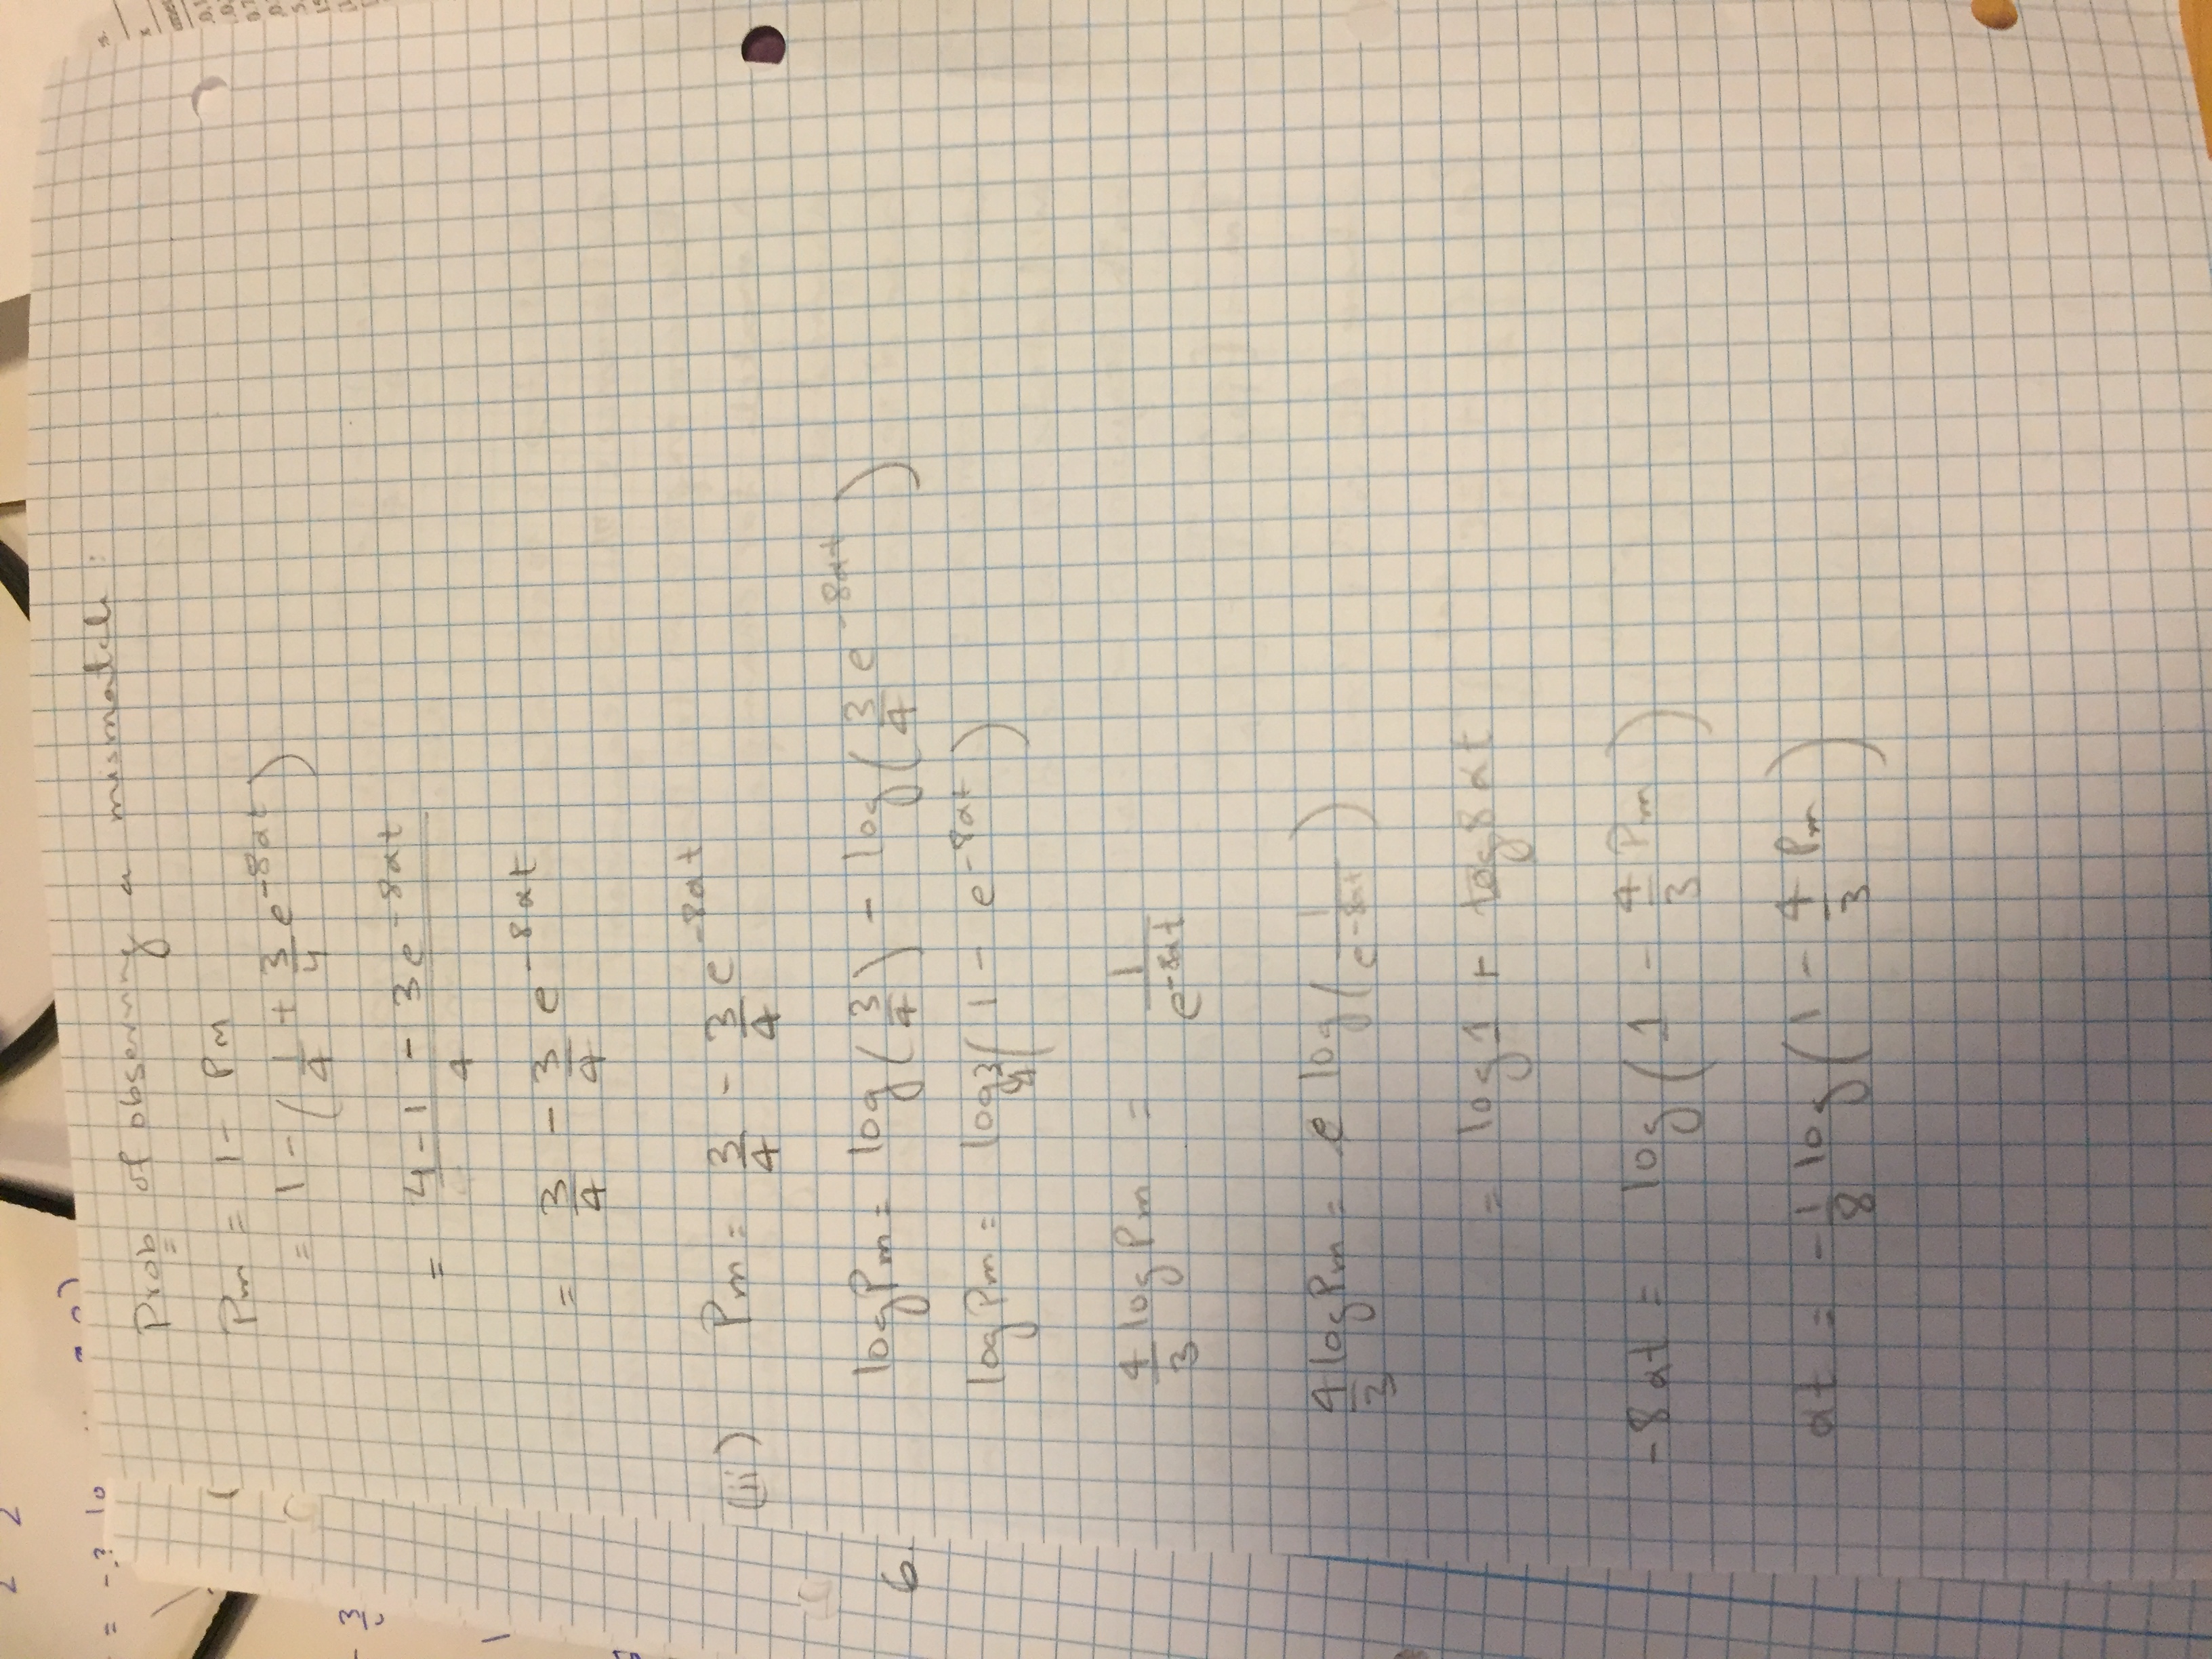 Prob of observing a mismatch :
Pm = 1 - PM
= 1 - ( 1/4 + 3/4 e^-8αt )
= (4 - 1 - 3e^-8αt) / 4
= 3/4 - 3/4 e^-8αt
(ii) Pm = 3/4 - 3/4 e^-8αt
log Pm = log ( 3/4 ) - log ( 3/4 e^-8αt )
6.
log Pm = log 3/4 ( 1 - e^-8αt )
4/3 log Pm = 1 / e^-8αt
4/3 log Pm = e log ( 1 / e^-8αt )
= log 1 + log 8αt
-8αt = log ( 1 - 4/3 Pm )
αt = - 1/8 log ( 1 - 4/3 Pm )